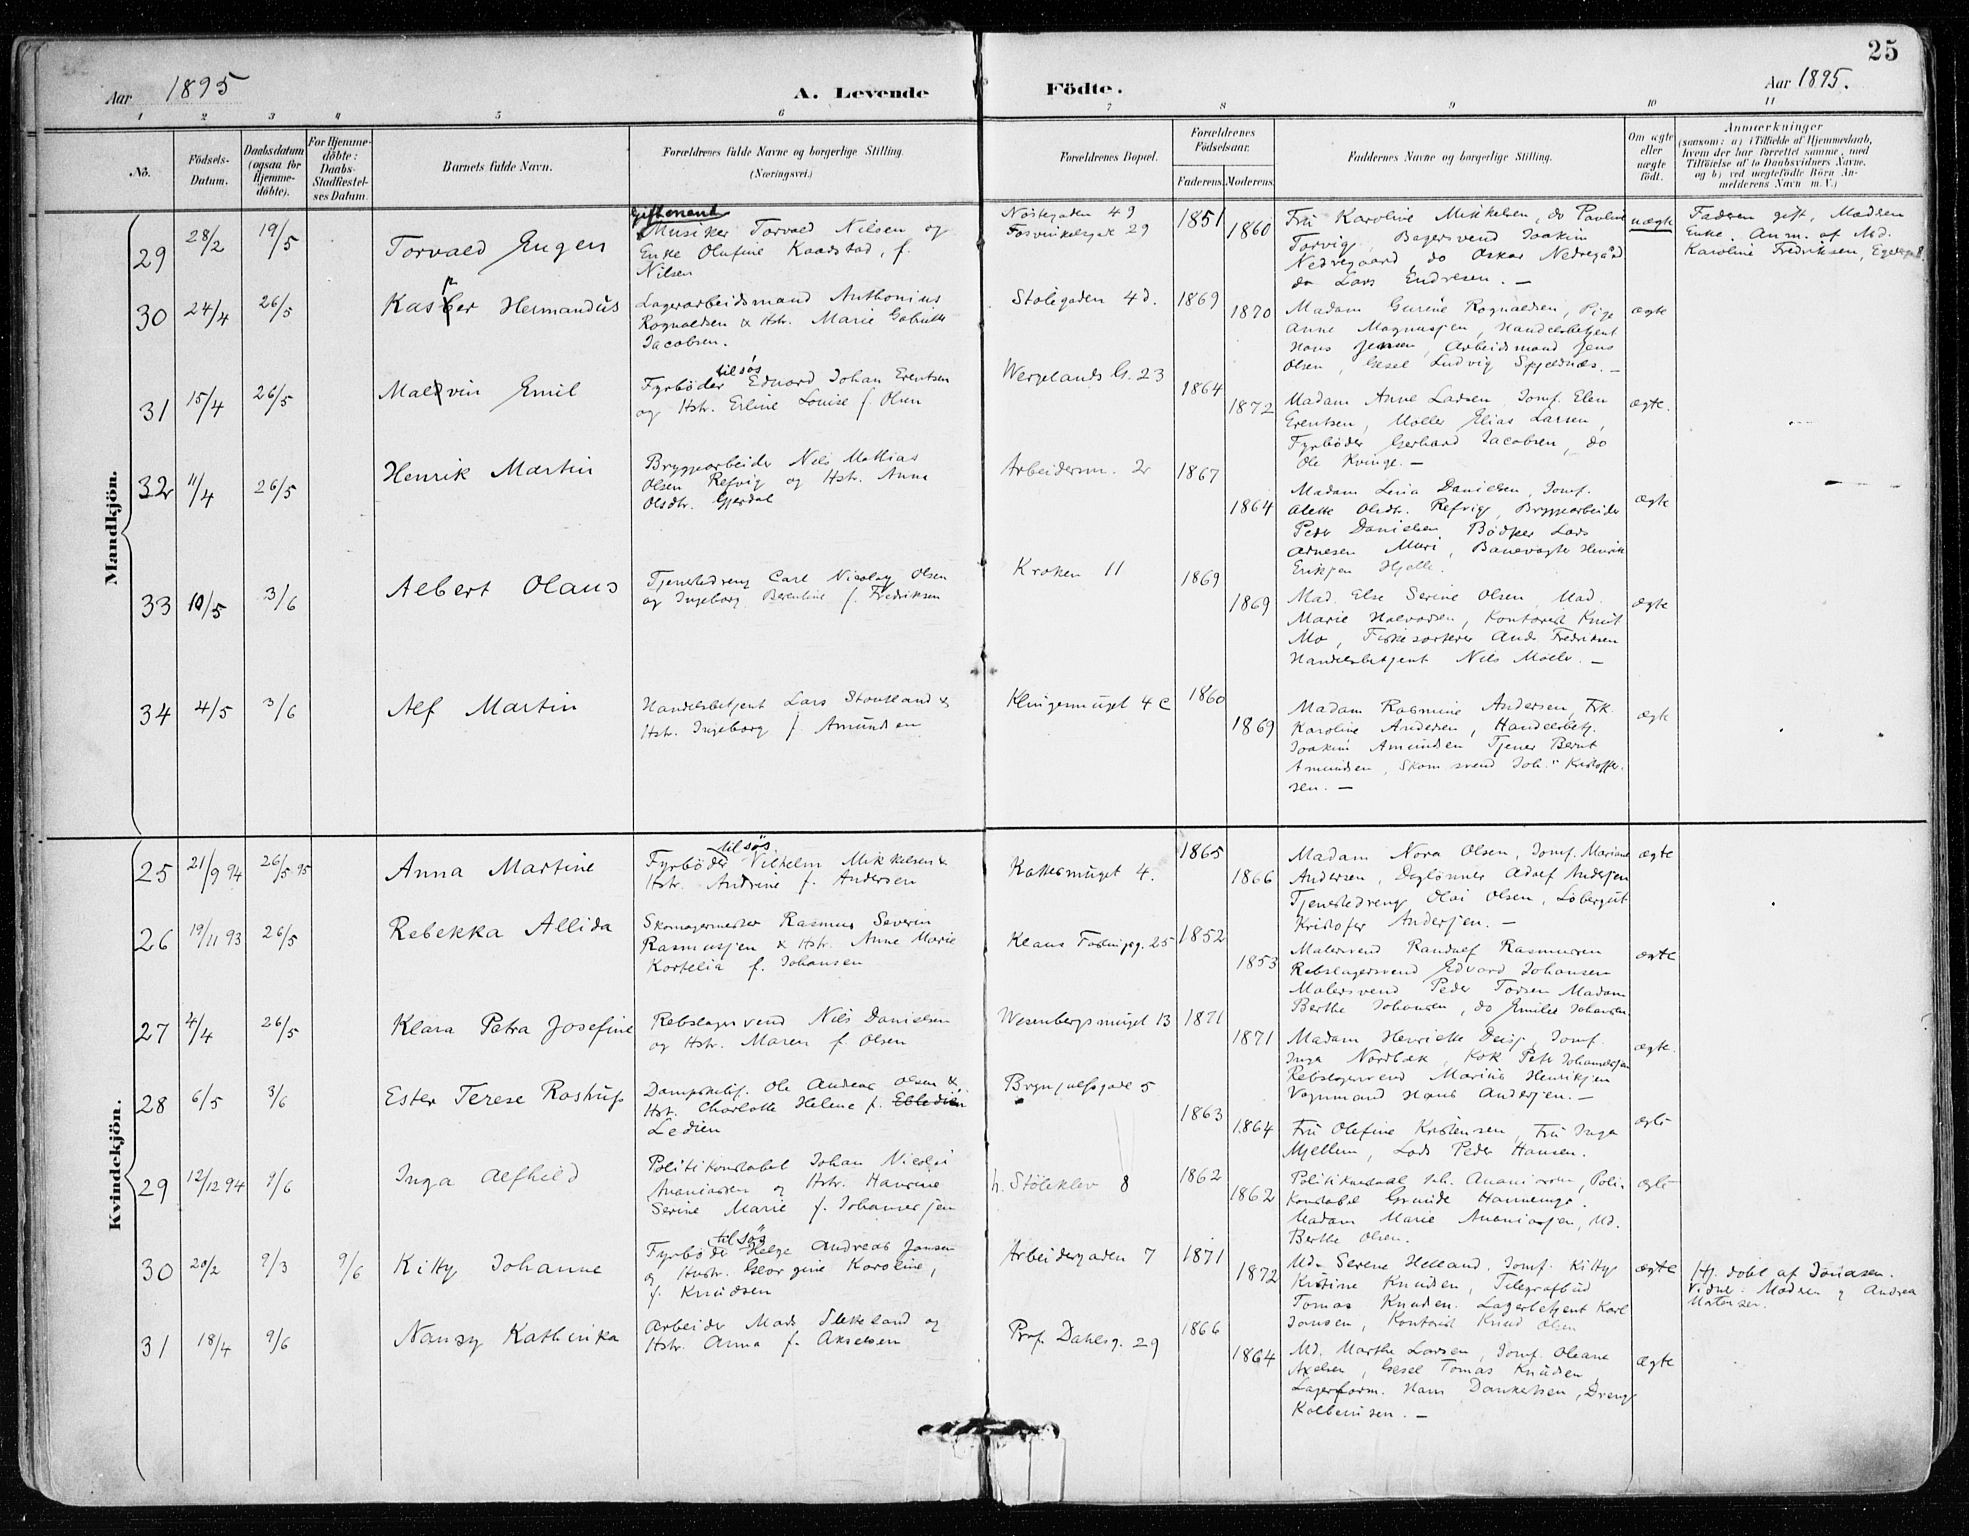 25
Aar 1895
A. Levende Födte.
Aar 1895.
1 2 3 4 5 6 7 8 9 10 11
No.
Födsels-Datum.
Daabsdatum (ogsaa for Hjemme-döbte).
For Hjemme-döbte: Daabs-Stadfæstel-ses Datum.
Barnets fulde Navn.
Forældrenes fulde Navne og borgerlige Stilling.
(Næringsvei.)
Forældrenes Bopæl.
Forældrenes Födselsaar.
Faderens. Moderens.
Faddernes Navne og borgerlige Stilling.
Om ægte eller uægte født.
Anmærkninger
(saasom: a) i Tilfælde af Hjemmedaab,
hvem der har forrettet samme, med
Tilföielse af to Daabsvidners Navne.
og b) ved uægtefödte Börn An-
melderens Navn m. V.)
Mandkjön.
29 28/2 19/5 Torvald Eugen
Giftemand
Musiker Torvald Nilsen og
Enke Olufine Kaarstad, f.
Nilsen
Nøstegaden 49
Fosvinkelgade 29
1851 1860
Fru Karoline Mikkelsen, do Pauline
Torvig, Bagersvend Joakim
Nedregaard, do Oskar Nedregård
do Lars Endresen. —
uægte
Faderen gift, Modren
Enke. Anm. af Md.
Karoline Fredriksen,
30 24/4 26/5 Kasper Hermandus
Lagerarbeidsmand Anthonius
Rognaldsen & Hst. Marie
Jacobsen.
Stølegaden 4d. 1869 1870
Madam Gurine Rognaldsen, Pige
Anne Magnusjen, Handelsbetjent
Hans Jensen, Arbeidsmand Jens
Olsen, Gesel Ludvig Spjeldnæs. —
ægte
31 15/4 26/5 Malvin Emil
Fyrbøder til søs Edvard Johan Erentsen
og Hst. Erline Louise f. Olsen
Wergelands G. 23 1864 1872
Madam Anne Larsen, Jomf. Elen
Erentsen, Møller Elias Larsen,
Fyrbøder Gerhard Jacobsen, do
Ole Kvinge. —
ægte.
32 11/4 26/5 Henrik Martin
Bryggearbeider Nils Mathias
Olsen Refvig og Hst. Anna
Olsdtr. Gjerdal
Arbeidersm. 2 1867 1864
Madam Lina Danielsen, Jomf.
Olsdtr. Refvig, Bryggearbeider
Peder Danielsen, Bødker Lars
Arnesen Muri, Banevogter Henrik
Eriksen Hjelle.
ægte
33 10/5 3/6 Albert Olaus
Tjenestedreng Carl Nicolay Olsen
og Ingeborg Berentine f. Fredriksen
Kroken 11 1869 1869
Mad. Else Serine Olsen, Mad.
Marie Halvorsen, Kontorist Knut
Mo, Fiskesorterer Andr. Fredriksen
Handelsbetjent Nils Møller. —
ægte
34 4/5 3/6 Alf Martin
Handelsbetjent Lars Stoutland &
Hst. Ingeborg f. Amundsen
Klingesmuget 4c 1860 1869
Madam Rasmine Andersen, Frk.
Karoline Andersen, Handelsbetj.
Joakim Amundsen Tjener Bernt
Amundsen, Skom.svend Joh. Kristoffer-
sen. —
ægte
Kvindekjön.
25 21/9 94 26/5 95 Anna Martine
Fyrbøder til søs Vilhelm Mikkelsen &
Hst. Andrine f. Andersen
Kattesmuget 4. 1865 1866
Madam Nora Olsen, Jomf. Mariane
Andersen, Daglønner Adolf Andersen
Tjenestedreng Olai Olsen, Løbergut
Kristofer Andersen. —
ægte
26 19/11 93 26/5 Rebekka Allida
Skomagermester Rasmus Severin
Rasmusjen & Hst. Anne Marie
Kornelia f. Johansen
Klaus Fastingsg. 25 1852 1853
Malersvend Randulf Rasmussen
Rebslagersvend Edvard Johansen
Malersvend Peder Torsen Madam
Berthe Johansen, do Emilie Johansen
ægte
27 4/4 26/5 Klara Petra Josefine
Rebslagersvend Nils Danielsen
og Hst. Maren f. Olsen
Wesenbergsmuget 13 1871 1871
Madam Henriette Jomf.
Inga Nordbæk, Kok Petr Johannesjen
Rebslagersvend Marius Henriksen
Vognmand Hans Andersen. —
ægte.
28 6/5 3/6 Ester Terese Rostrup
Dampskibsf. Ole Andreas Olsen &
Hst. Charlotte Helene f.
Ledien
Brynjulfsgade 5 1863 1864
Fru Olefine Kristensen, Fru Inga
Mjellem, Lods Peder Hansen.
ægte
29 12/12 94 9/6 Inga Alfhild
Politikonstabel Johan Nicolai
Ananiassen og Hst. Haurine
Serine Marie f. Johannesjen
h. Støleklev 8 1862 1862
Politikonstabel Joh. Ananiassen, Poli-
konstabel
Madam Marie Ananiasjen, Md.
Berthe Olsen.
ægte
30 20/2 9/3 9/6 Kitty Johanne
Fyrbøder til søs Helge Andreas Jansen
og Hustr. Georgine Karoline,
f. Knudsen
Arbeidergaden 7 1871 1872
Md. Serene Helland, Jomf. Kitty
Kristine Knudsen, Telegrafbud
Tomas Knudsen. Lagerbetjent Karl
Jansen, Kontorist Knud Olsen
ægte
Hj. døbt af Jonasen.
Vidne: Modren & Andrea
31 18/4 9/6 Nansy Kathinka
Arbeider Mads Slekeland og
Hst. Anna f. Akselsen
Prof. Dahlsg. 29 1866 1864
Md. Marthe Larsen, Jomf. Oleane
Axelsen, Gesel Tomas Knudsen,
Lagerform. Hans Dankertsen, Dreng
ægte